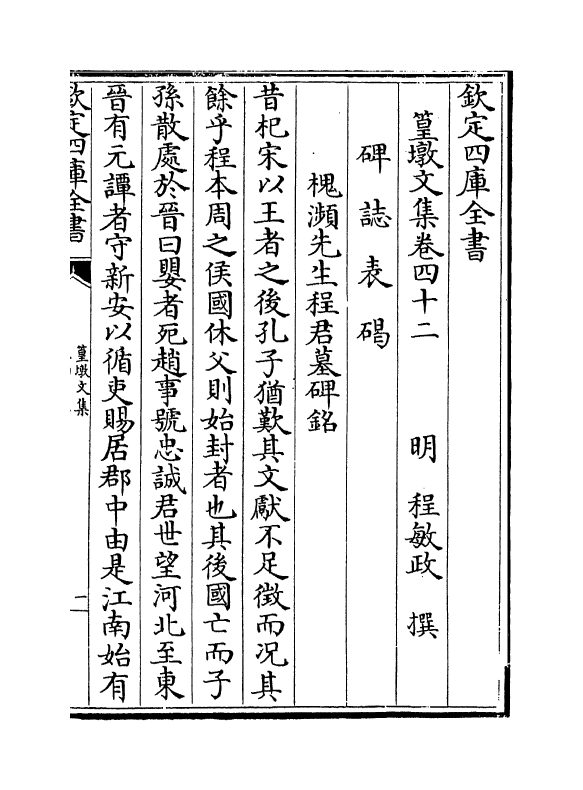 欽定四庫全書
篁墩文集卷四十二　明　程敏政　撰
碑誌表碣
槐瀕先生程君墓碑銘
昔杞宋以王者之後孔子猶歎其文獻不足徵而况其
餘乎程本周之侯國休父則始封者也其後國亡而子
孫散處於晉曰嬰者死趙事號忠誠君世望河北至東
晉有元譚者守新安以循吏賜居郡中由是江南始有
欽定四庫全書
篁墩文集
二